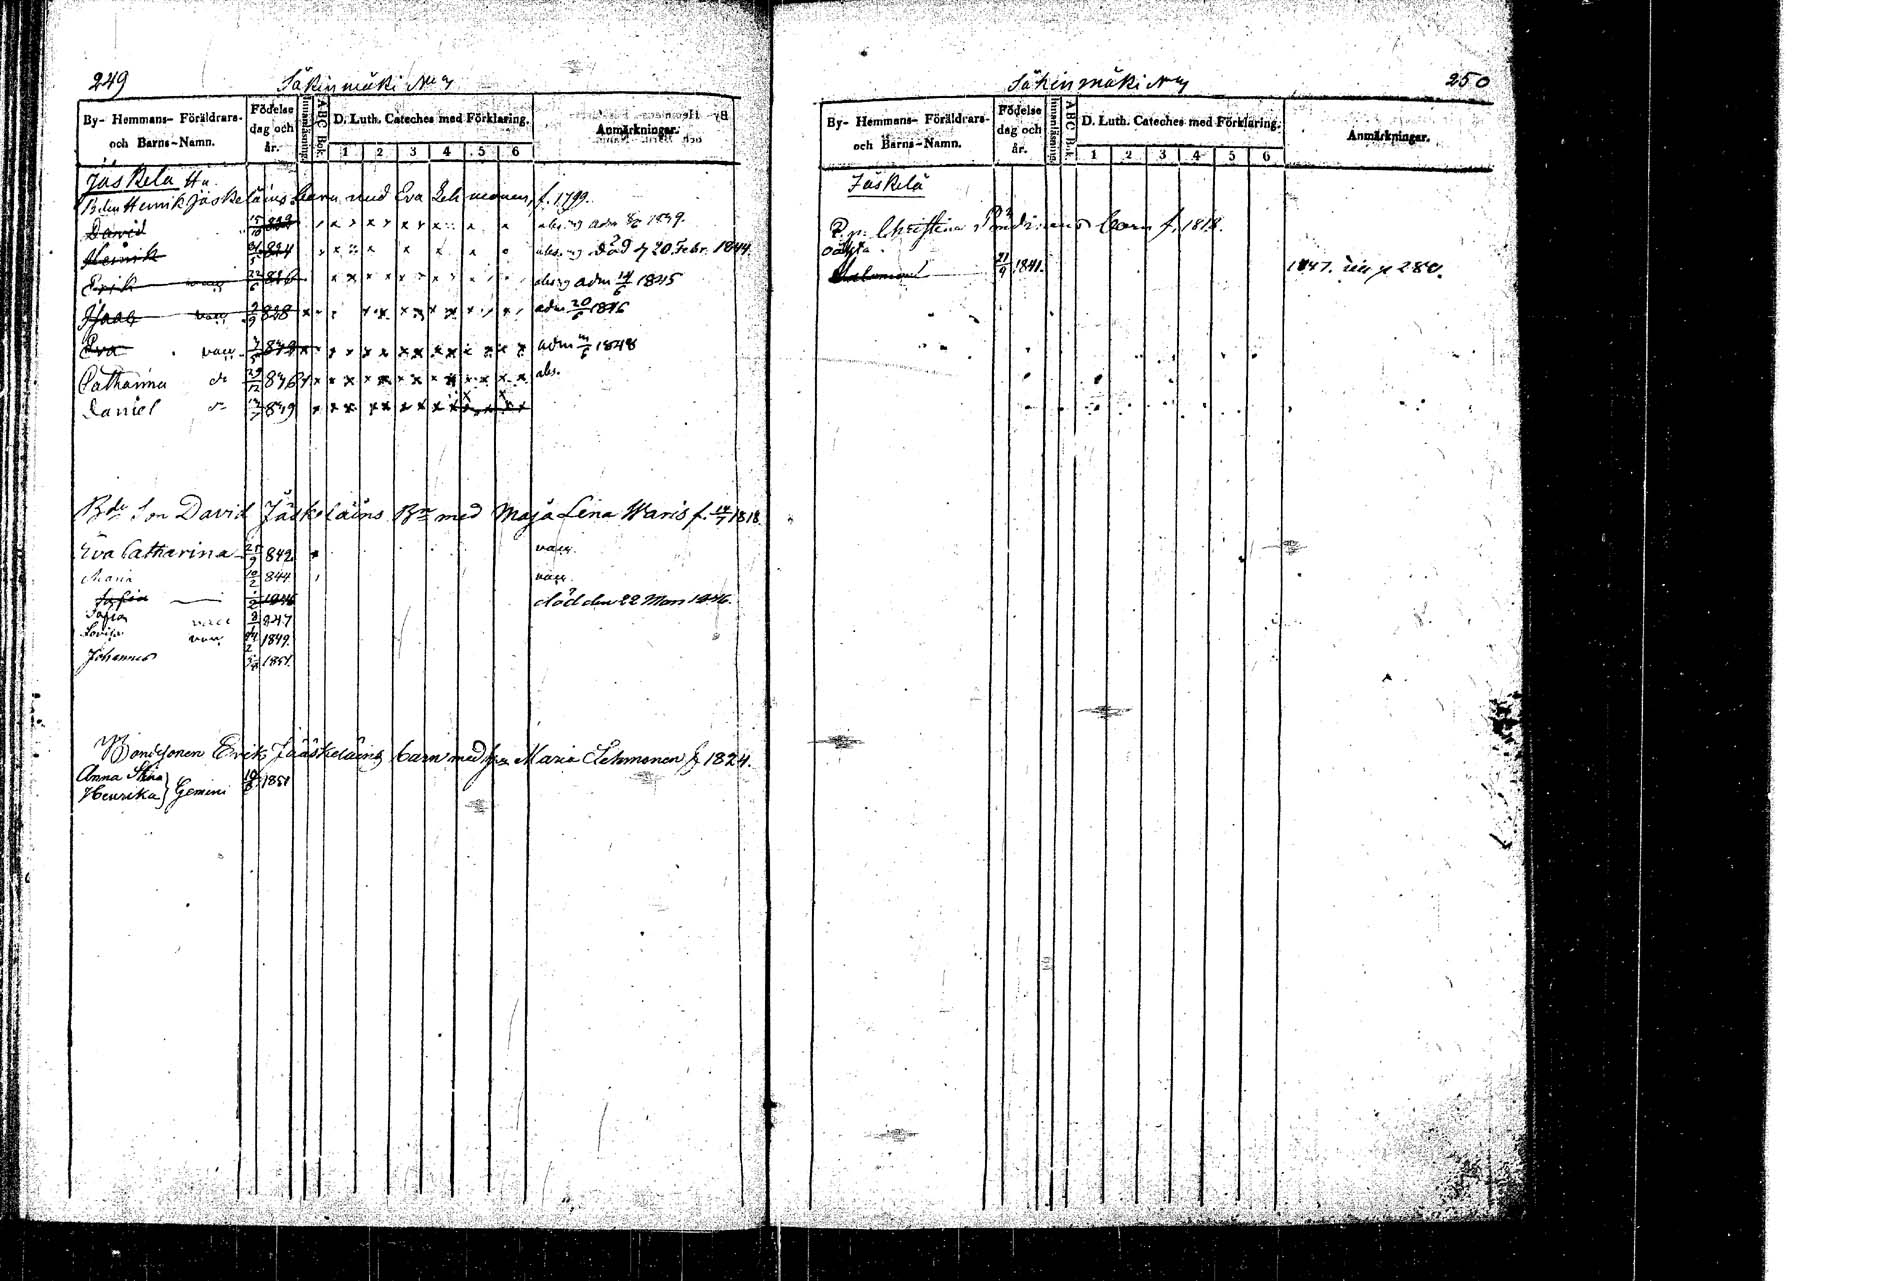 249
Säkinmäki No 7
By- Hemmans- Föräldrars- och Barns-Namn.
Födelse dag och år.
Innanläsning.
A B C Bok.
D. Luth. Cateches med Förklaring.
1 2 3 4 5 6
Anmärkningar.
Jäskelä
Henrik Jäskeläins barn med Eva Lehmonen, f. 1799.
David 15/10 822
Henrik 31/5 824 död d 20 Febr. 1844
Erik vacc 22/6 826 adm 14/6 1845
Isaac vacc 2/9 828 adm 20/6 1846
Eva vacc 7/5 adm 1848
Catharina do 29/12 836 abs.
Daniel do 12/7 839
Bde Son David Jäskeläins Bn med Maja Lena Waris f. 14/7 1818
Eva Catharina 21/9 842 vacc
Maria 10/2 844 vacc
Sofia 1846 död den 22 Mars 1846.
Sofia vacc 847
Lovisa vacc 24/2 1849.
Johannes 1851.
Bondsonen Erik Jääskeläins barn med hu Maria Lehmonen f 1824.
Anna Stina
Henrika } Gemini 10/8 1851
250
Säkinmäki No 7
By- Hemmans- Föräldrars- och Barns-Namn.
Födelse dag och år.
Innanläsning.
A B C Bok.
D. Luth. Cateches med Förklaring.
1 2 3 4 5 6
Anmärkningar.
Jäskelä
P. p. Christina barn f. 1818.
oäkta
Salomon 21/9 1841. 1847. p 280.